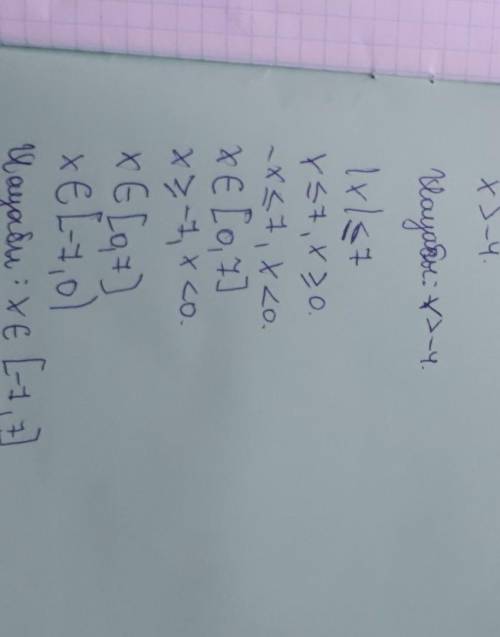 x > -4.
Жауабы: x > -4.
|x| ≤ 7
x ≤ 7, x ≥ 0.
-x ≤ 7, x < 0.
x ∈ [0, 7]
x ≥ -7, x < 0.
x ∈ [0, 7)
x ∈ [-7, 0)
Жауабы: x ∈ [-7, 7]